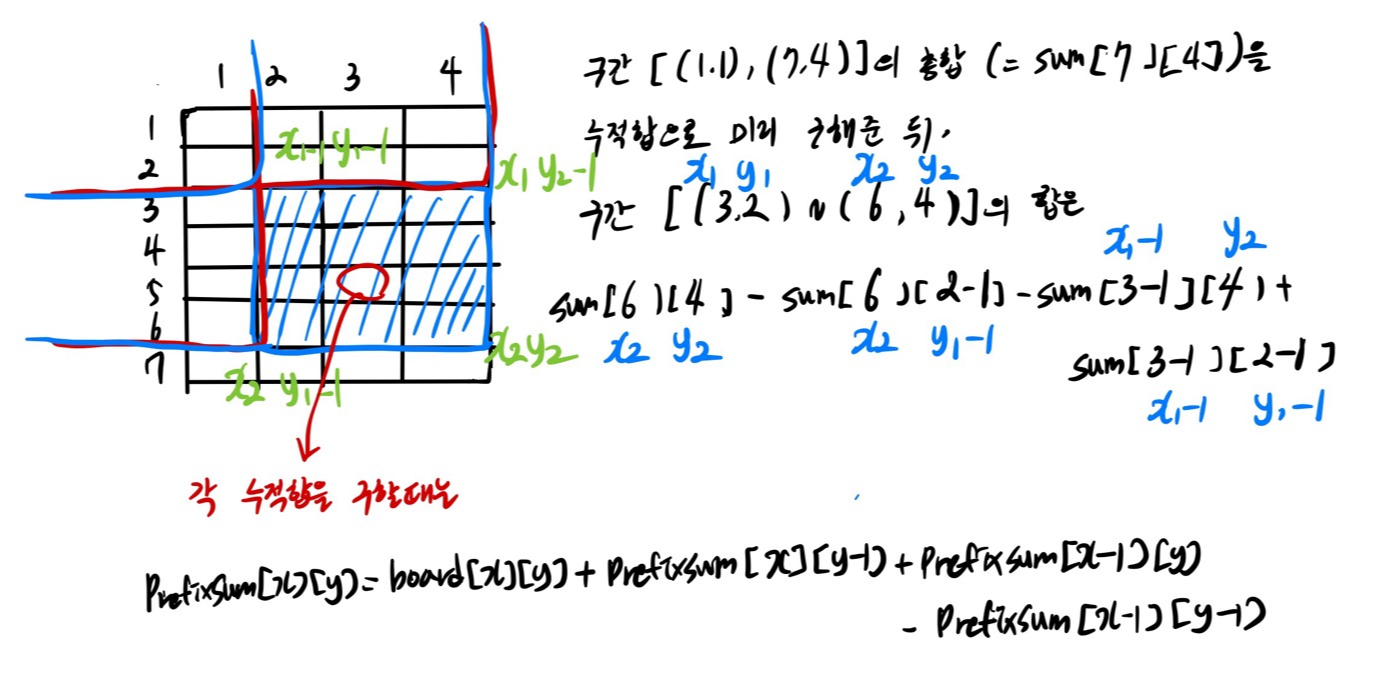 1 2 3 4
1
2
3
4
5
6
7
x1-1 y1-1
x1 y2-1
x2 y2
x2 y1-1
구간 [(1.1), (7.4)]의 총합 (= sum[7][4])을
누적합으로 미리 구해준 뒤.
x1 y1 x2 y2
구간 [(3.2) ~ (6,4)]의 합은
x1-1 y2
sum[6][4] - sum[6][2-1] - sum[3-1][4] +
x2 y2 x2 y1-1
sum[3-1][2-1]
x1-1 y1-1
각 누적합을 구할때는
Prefixsum[x][y] = board[x][y] + Prefixsum[x][y-1] + Prefixsum[x-1][y]
- Prefixsum[x-1][y-1]